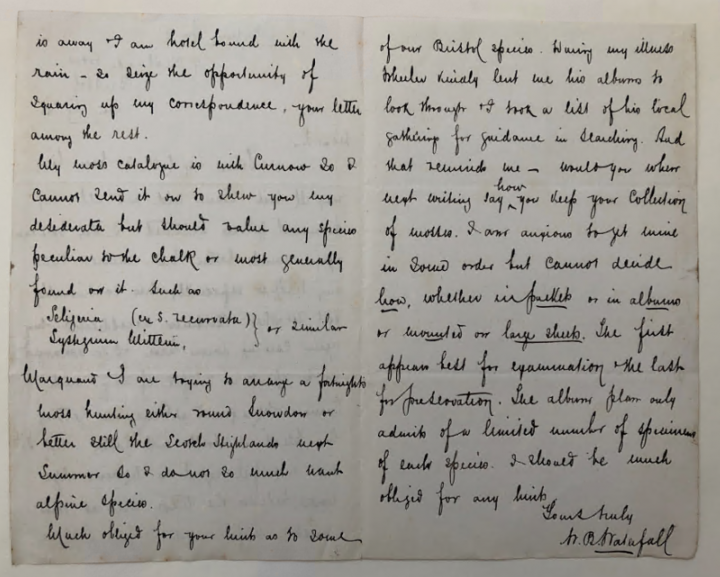 is away & I am hotel bound with the
rain – so seize the opportunity of
squaring up my correspondence, your letter
among the rest.
My moss catalogue is with Curnow so I
cannot send it on to shew you my
desiderata but should value any species
peculiar to the chalk or most generally
found on it such as
Seligeria (ex S. recurvata) } or similar
Systegium Mittenii,
Marquand & I are trying to arrange a fortnights
moss hunting either round Snowdon or
better still the Scotch Highlands next
Summer so I do not so much want
alpine species.
Much obliged for your hints as to some
of our Bristol species. During my illness
Wheeler kindly lent me his albums to
look through & I took a list of his local
gathering for guidance in searching. And
that reminds me – would you when
next writing say how you keep your collection
of mosses. I am anxious to get mine
in some order but cannot decide
how, whether in packets or in albums
or mounted on large sheets. The first
appears best for examination & the last
for preservation. The album plan only
admits of a limited number of specimens
of each species. I should be much
obliged for any hints
Yours truly
W. B. Waterfall